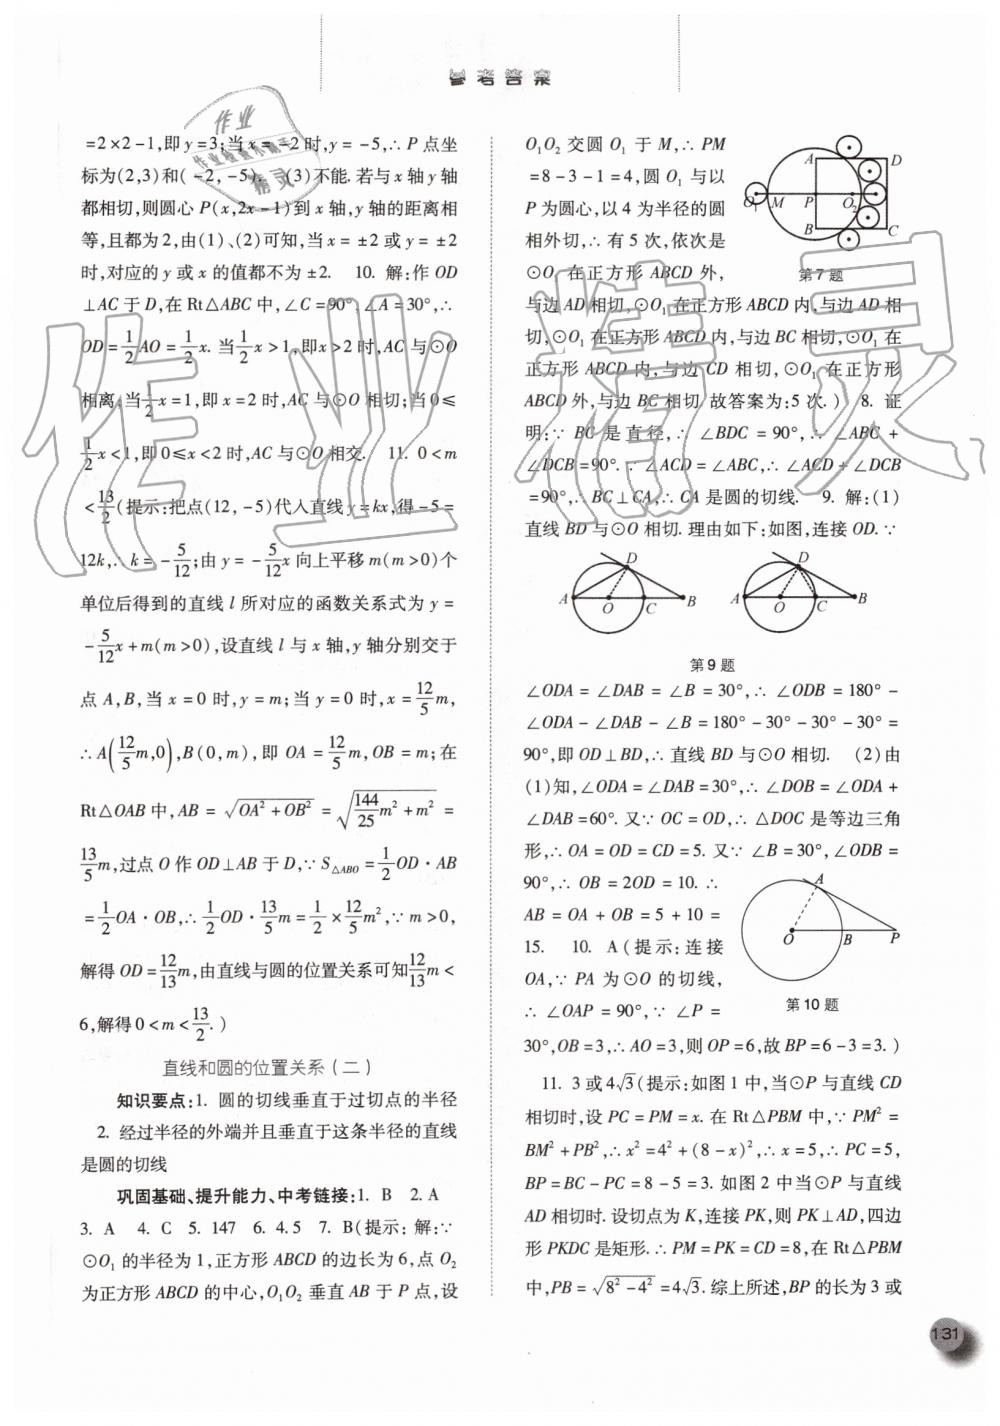 参考答案
=2×2-1,即y=3;当x=-2时,y=-5,∴P点坐
标为(2,3)和(-2,-5). (3)不能.若与x轴y轴
都相切,则圆心P(x,2x-1)到x轴,y轴的距离相
等,且都为2,由(1)、(2)可知,当x=±2或y=±2
时,对应的y或x的值都不为±2. 10. 解:作OD
⊥AC于D,在Rt△ABC中,∠C=90°,∠A=30°,∴
OD=1/2AO=1/2x. 当1/2x>1,即x>2时,AC与⊙O
相离;当1/2x=1,即x=2时,AC与⊙O相切;当0≤
1/2x<1,即0≤x<2时,AC与⊙O相交. 11. 0<m
<13/2(提示:把点(12,-5)代人直线y=kx,得-5=
12k,∴k=-5/12;由y=-5/12x向上平移m(m>0)个
单位后得到的直线l所对应的函数关系式为y=
-5/12x+m(m>0),设直线l与x轴,y轴分别交于
点A,B,当x=0时,y=m;当y=0时,x=12/5m,
∴A(12/5m,0),B(0,m),即OA=12/5m,OB=m;在
Rt△OAB中,AB=√(OA²+OB²)=√(144/25m²+m²)=
13/5m,过点O作OD⊥AB于D,∵S△ABO=1/2OD·AB
=1/2OA·OB,∴1/2OD·13/5m=1/2×12/5m²,∵m>0,
解得OD=12/13m,由直线与圆的位置关系可知12/13m<
6,解得0<m<13/2.)
直线和圆的位置关系(二)
知识要点:1. 圆的切线垂直于过切点的半径
2. 经过半径的外端并且垂直于这条半径的直线
是圆的切线
巩固基础、提升能力、中考链接:1. B 2. A
3. A 4. C 5. 147 6. 4.5 7. B(提示:解:∵
⊙O₁的半径为1,正方形ABCD的边长为6,点O₂
为正方形ABCD的中心,O₁O₂垂直AB于P点,设
O₁O₂交圆O₁于M,∴PM
=8-3-1=4,圆O₁与以
P为圆心,以4为半径的圆
相外切,∴有5次,依次是
⊙O₁在正方形ABCD外,
A D O₁ M P O₂ B C
第7题
与边AD相切,⊙O₁在正方形ABCD内,与边AD相
切,⊙O₁在正方形ABCD内,与边BC相切,⊙O₁在
正方形ABCD内,与边CD相切,⊙O₁在正方形
ABCD外,与边BC相切.故答案为:5次.) 8. 证
明:∵BC是直径,∴∠BDC=90°,∴∠ABC+
∠DCB=90°.∵∠ACD=∠ABC,∴∠ACD+∠DCB
=90°,∴BC⊥CA,∴CA是圆的切线. 9. 解:(1)
直线BD与⊙O相切.理由如下:如图,连接OD.∵
D A O C B
D A O C B
第9题
∠ODA=∠DAB=∠B=30°,∴∠ODB=180°-
∠ODA-∠DAB-∠B=180°-30°-30°-30°=
90°,即OD⊥BD,∴直线BD与⊙O相切. (2)由
(1)知,∠ODA=∠DAB=30°,∴∠DOB=∠ODA+
∠DAB=60°.又∵OC=OD,∴△DOC是等边三角
形,∴OA=OD=CD=5.又∵∠B=30°,∠ODB=
90°,∴OB=2OD=10.∴
AB=OA+OB=5+10=
15. 10. A(提示:连接
OA,∵PA为⊙O的切线,
∴∠OAP=90°,∵∠P=
A O B P
第10题
30°,OB=3,∴AO=3,则OP=6,故BP=6-3=3.)
11. 3或4√3(提示:如图1中,当⊙P与直线CD
相切时,设PC=PM=x.在Rt△PBM中,∵PM²=
BM²+PB²,∴x²=4²+(8-x)²,∴x=5,∴PC=5,
BP=BC-PC=8-5=3.如图2中当⊙P与直线
AD相切时.设切点为K,连接PK,则PK⊥AD,四边
形PKDC是矩形.∴PM=PK=CD=8,在Rt△PBM
中,PB=√(8²-4²)=4√3.综上所述,BP的长为3或
131
作业精灵